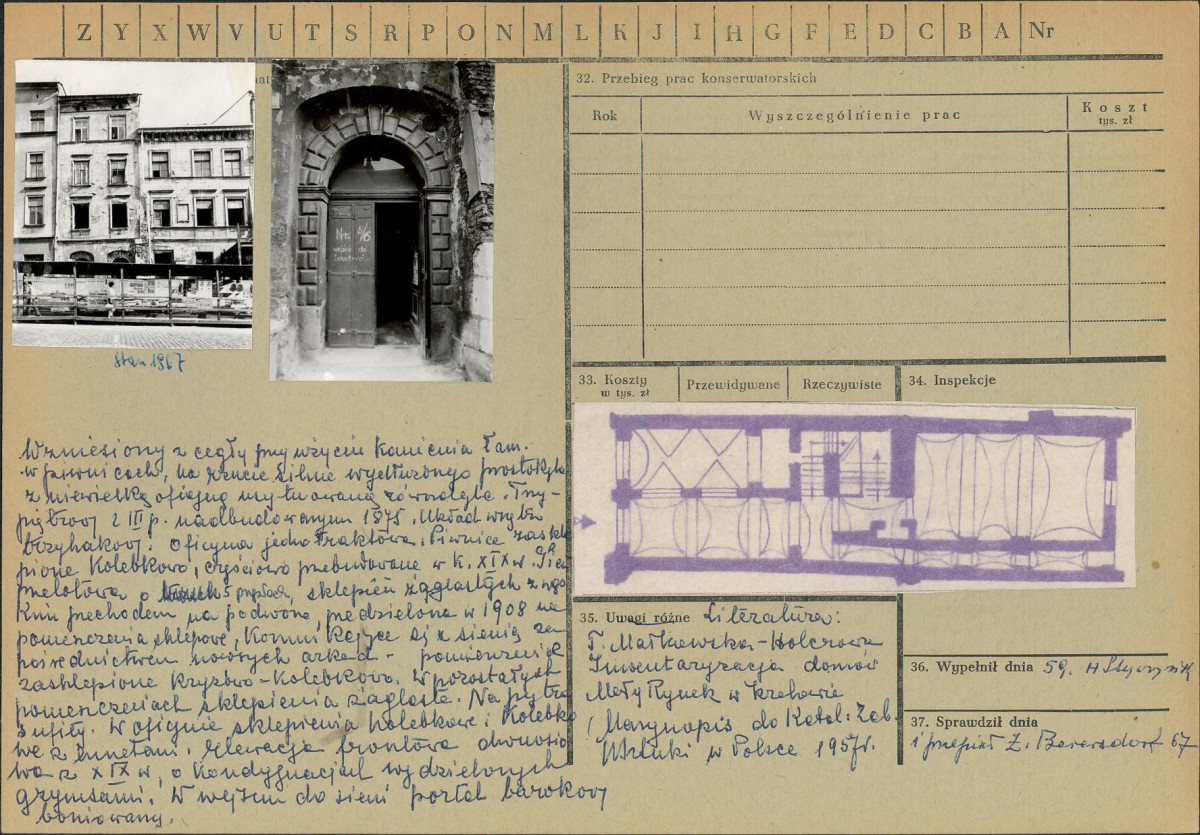 Z Y X W V U T S R P O N M L K J I H G F E D C B A Nr
32. Przebieg prac konserwatorskich
Rok
Wyszczególnienie prac
Koszt
tys. zł
Nr. 5/6
wejście do
Stan 1967
33. Koszty
w tys. zł
Przewidywane
Rzeczywiste
34. Inspekcje
Wzniesiony z cegły przy użyciu kamienia łam.
w piwnicach, na rzucie silnie wydłużonego prostokąta
z niewielką oficyną usytuowaną równolegle. Trzy-
piętrowy z III p. nadbudowanym 1875. Układ wnętrz
trzytraktowy. Oficyna jednotraktowa. Piwnice zaskle
pione kolebkowo, częściowo przebudowane w k. XIX w. Sień
przelotowa o 5 przęsłach, sklepień żaglastych z wąs
kim przechodem na podwórze, przedzielona w 1908 na
pomieszczenia sklepowe, komunikujące się z sienią za
pośrednictwem nowszych arkad - pomieszczenie
zasklepione krzyżowo-kolebkowo. W pozostałych
pomieszczeniach sklepienia żaglaste. Na piętrze
sufity. W oficynie sklepienia kolebkowe i kolebko
we z lunetami. Elewacja frontowa dwuosio
wa z XIX w, o kondygnacjach wydzielonych
gzymsami. W wejściu do sieni portal barokowy
boniowany.
35. Uwagi różne Literatura:
T. Małkowska-Holcerowa
Inwentaryzacja domów
Mały Rynek w Krakowie
Maszynopis do Katal. Zab.
Sztuki w Polsce 1957r.
36. Wypełnił dnia 59. H Styczyńk
37. Sprawdził dnia
i przepisał Z. Beiersdorf 67